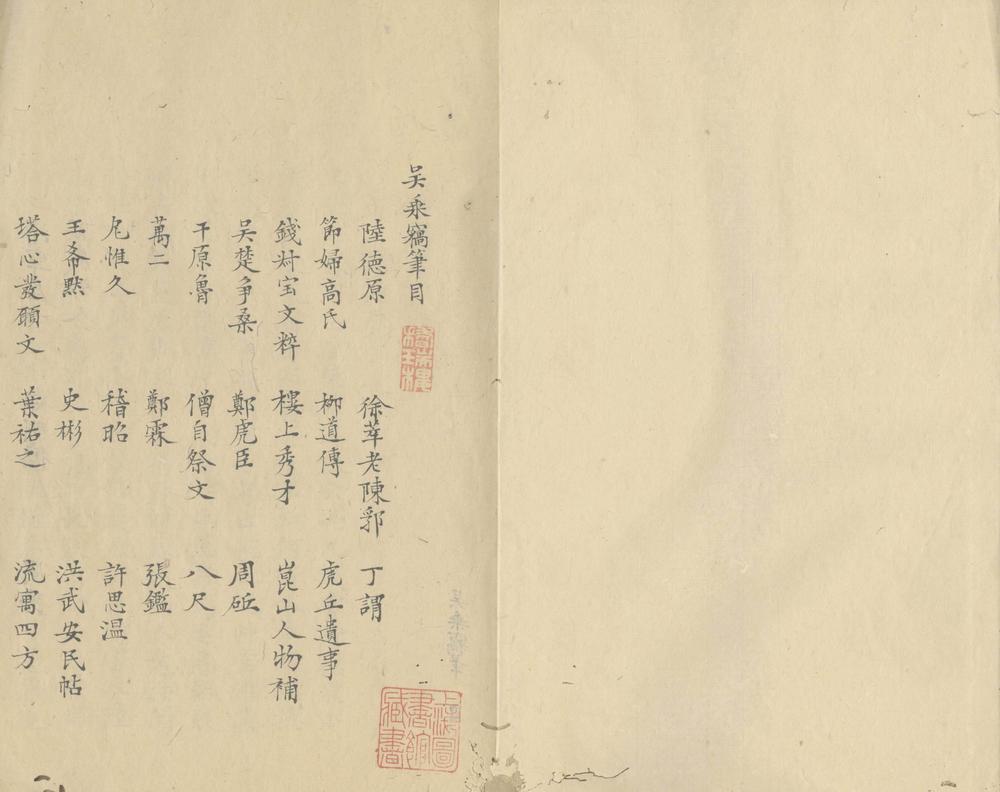 吴乘竊筆目
陸德原 徐萃老陳郭 丁謂
節婦高氏 柳道傳 虎丘遺事
錢尌宝文粹 樓上秀才 崑山人物補
吴楚争桑 鄭虎臣 周
干原魯 僧自祭文 八尺
萬二 鄭霖 張鑑
尼惟久 稽昭 許思温
王希默 史彬 洪武安民帖
塔心發願文 葉祐之 流寓四方
上海圖書館藏書